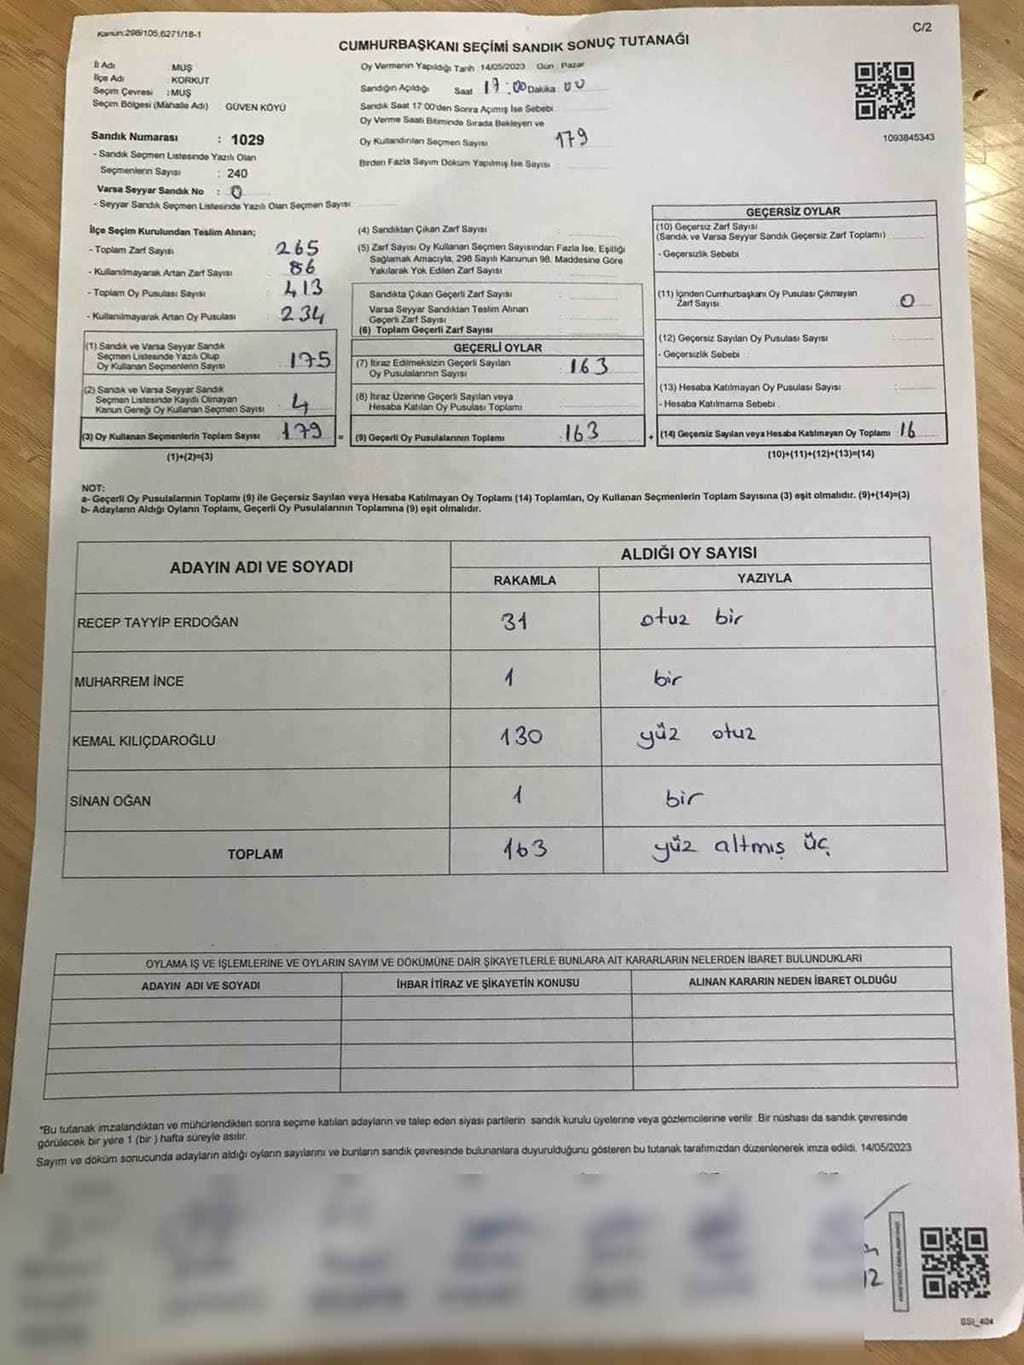 Kanun:298/105,6271/18-1
C/2
CUMHURBAŞKANI SEÇİMİ SANDIK SONUÇ TUTANAĞI
İl Adı MUŞ
İlçe Adı KORKUT
Seçim Çevresi :MUŞ
Seçim Bölgesi (Mahalle Adı) GÜVEN KÖYÜ
Sandık Numarası : 1029
- Sandık Seçmen Listesinde Yazılı Olan
Seçmenlerin Sayısı : 240
Varsa Seyyar Sandık No : 0
- Seyyar Sandık Seçmen Listesinde Yazılı Olan Seçmen Sayısı
Oy Vermenin Yapıldığı Tarih 14/05/2023 Gün : Pazar
Sandığın Açıldığı Saat 17:00 Dakika 00
Sandık Saat 17:00'den Sonra Açılmış İse Sebebi
Oy Verme Saati Bitiminde Sırada Bekleyen ve
Oy Kullandırılan Seçmen Sayısı 179
Birden Fazla Sayım Döküm Yapılmış İse Sayısı
1093845343
İlçe Seçim Kurulundan Teslim Alınan;
- Toplam Zarf Sayısı 265
- Kullanılmayarak Artan Zarf Sayısı 86
- Toplam Oy Pusulası Sayısı 413
- Kullanılmayarak Artan Oy Pusulası 234
(1) Sandık ve Varsa Seyyar Sandık
Seçmen Listesinde Yazılı Olup
Oy Kullanan Seçmenlerin Sayısı 175
(2) Sandık ve Varsa Seyyar Sandık
Seçmen Listesinde Kayıtlı Olmayan
Kanun Gereği Oy Kullanan Seçmen Sayısı 4
(3) Oy Kullanan Seçmenlerin Toplam Sayısı 179 =
(1)+(2)=(3)
(4) Sandıktan Çıkan Zarf Sayısı
(5) Zarf Sayısı Oy Kullanan Seçmen Sayısından Fazla İse, Eşitliği
Sağlamak Amacıyla, 298 Sayılı Kanunun 98. Maddesine Göre
Yakılarak Yok Edilen Zarf Sayısı
Sandıkta Çıkan Geçerli Zarf Sayısı
Varsa Seyyar Sandıktan Teslim Alınan
Geçerli Zarf Sayısı
(6) Toplam Geçerli Zarf Sayısı
GEÇERLİ OYLAR
(7) İtiraz Edilmeksizin Geçerli Sayılan
Oy Pusulalarının Sayısı 163
(8) İtiraz Üzerine Geçerli Sayılan veya
Hesaba Katılan Oy Pusulası Toplamı
(9) Geçerli Oy Pusulalarının Toplamı 163 +
GEÇERSİZ OYLAR
(10) Geçersiz Zarf Sayısı
(Sandık ve Varsa Seyyar Sandık Geçersiz Zarf Toplamı)
- Geçersizlik Sebebi
(11) İçinden Cumhurbaşkanı Oy Pusulası Çıkmayan
Zarf Sayısı 0
(12) Geçersiz Sayılan Oy Pusulası Sayısı
- Geçersizlik Sebebi :
(13) Hesaba Katılmayan Oy Pusulası Sayısı
- Hesaba Katılmama Sebebi :
(14) Geçersiz Sayılan veya Hesaba Katılmayan Oy Toplamı 16
(10)+(11)+(12)+(13)=(14)
NOT:
a- Geçerli Oy Pusulalarının Toplamı (9) ile Geçersiz Sayılan veya Hesaba Katılmayan Oy Toplamı (14) Toplamları, Oy Kullanan Seçmenlerin Toplam Sayısına (3) eşit olmalıdır. (9)+(14)=(3)
b- Adayların Aldığı Oyların Toplamı, Geçerli Oy Pusulalarının Toplamına (9) eşit olmalıdır.
ADAYIN ADI VE SOYADI ALDIĞI OY SAYISI
RAKAMLA YAZIYLA
RECEP TAYYİP ERDOĞAN 31 otuz bir
MUHARREM İNCE 1 bir
KEMAL KILIÇDAROĞLU 130 yüz otuz
SİNAN OĞAN 1 bir
TOPLAM 163 yüz altmış üç
OYLAMA İŞ VE İŞLEMLERİNE VE OYLARIN SAYIM VE DÖKÜMÜNE DAİR ŞİKAYETLERLE BUNLARA AİT KARARLARIN NELERDEN İBARET BULUNDUKLARI
ADAYIN ADI VE SOYADI İHBAR İTİRAZ VE ŞİKAYETİN KONUSU ALINAN KARARIN NEDEN İBARET OLDUĞU
*Bu tutanak imzalandıktan ve mühürlendikten sonra seçime katılan adayların ve talep eden siyasi partilerin sandık kurulu üyelerine veya gözlemcilerine verilir. Bir nüshası da sandık çevresinde
görülecek bir yere 1 (bir ) hafta süreyle asılır.
Sayım ve döküm sonucunda adayların aldığı oyların sayılarını ve bunların sandık çevresinde bulunanlara duyurulduğunu gösteren bu tutanak tarafımızdan düzenlenerek imza edildi. 14/05/2023
12
SSI_404